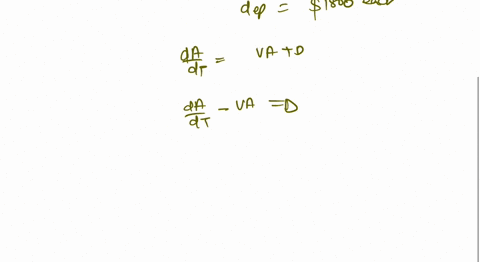 dep = $1800
dA/dT = VA + D
dA/dT - VA = D